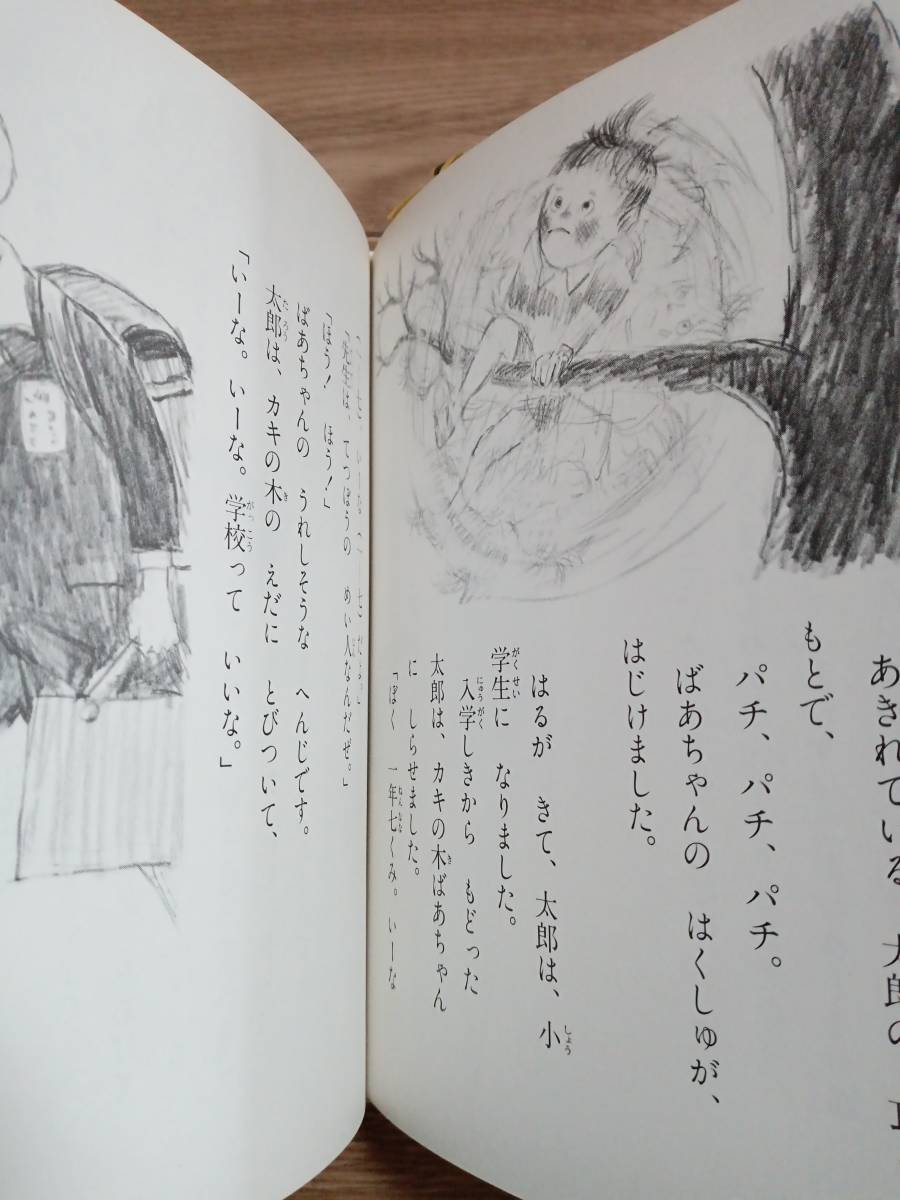 あきれている 太郎の
もとで、
パチ、パチ、パチ。
ばあちゃんの はくしゅが、
はじけました。
はるが きて、太郎は、小
学生に なりました。
入学しきから もどった
太郎は、カキの木ばあちゃん
に しらせました。
「ぼく 一年七くみ。いーな
てつぼうの めい人なんだぜ。」
「ほう！ ほう！」
ばあちゃんの うれしそうな へんじです。
太郎は、カキの木の えだに とびついて、
「いーな。いーな。学校って いいな。」